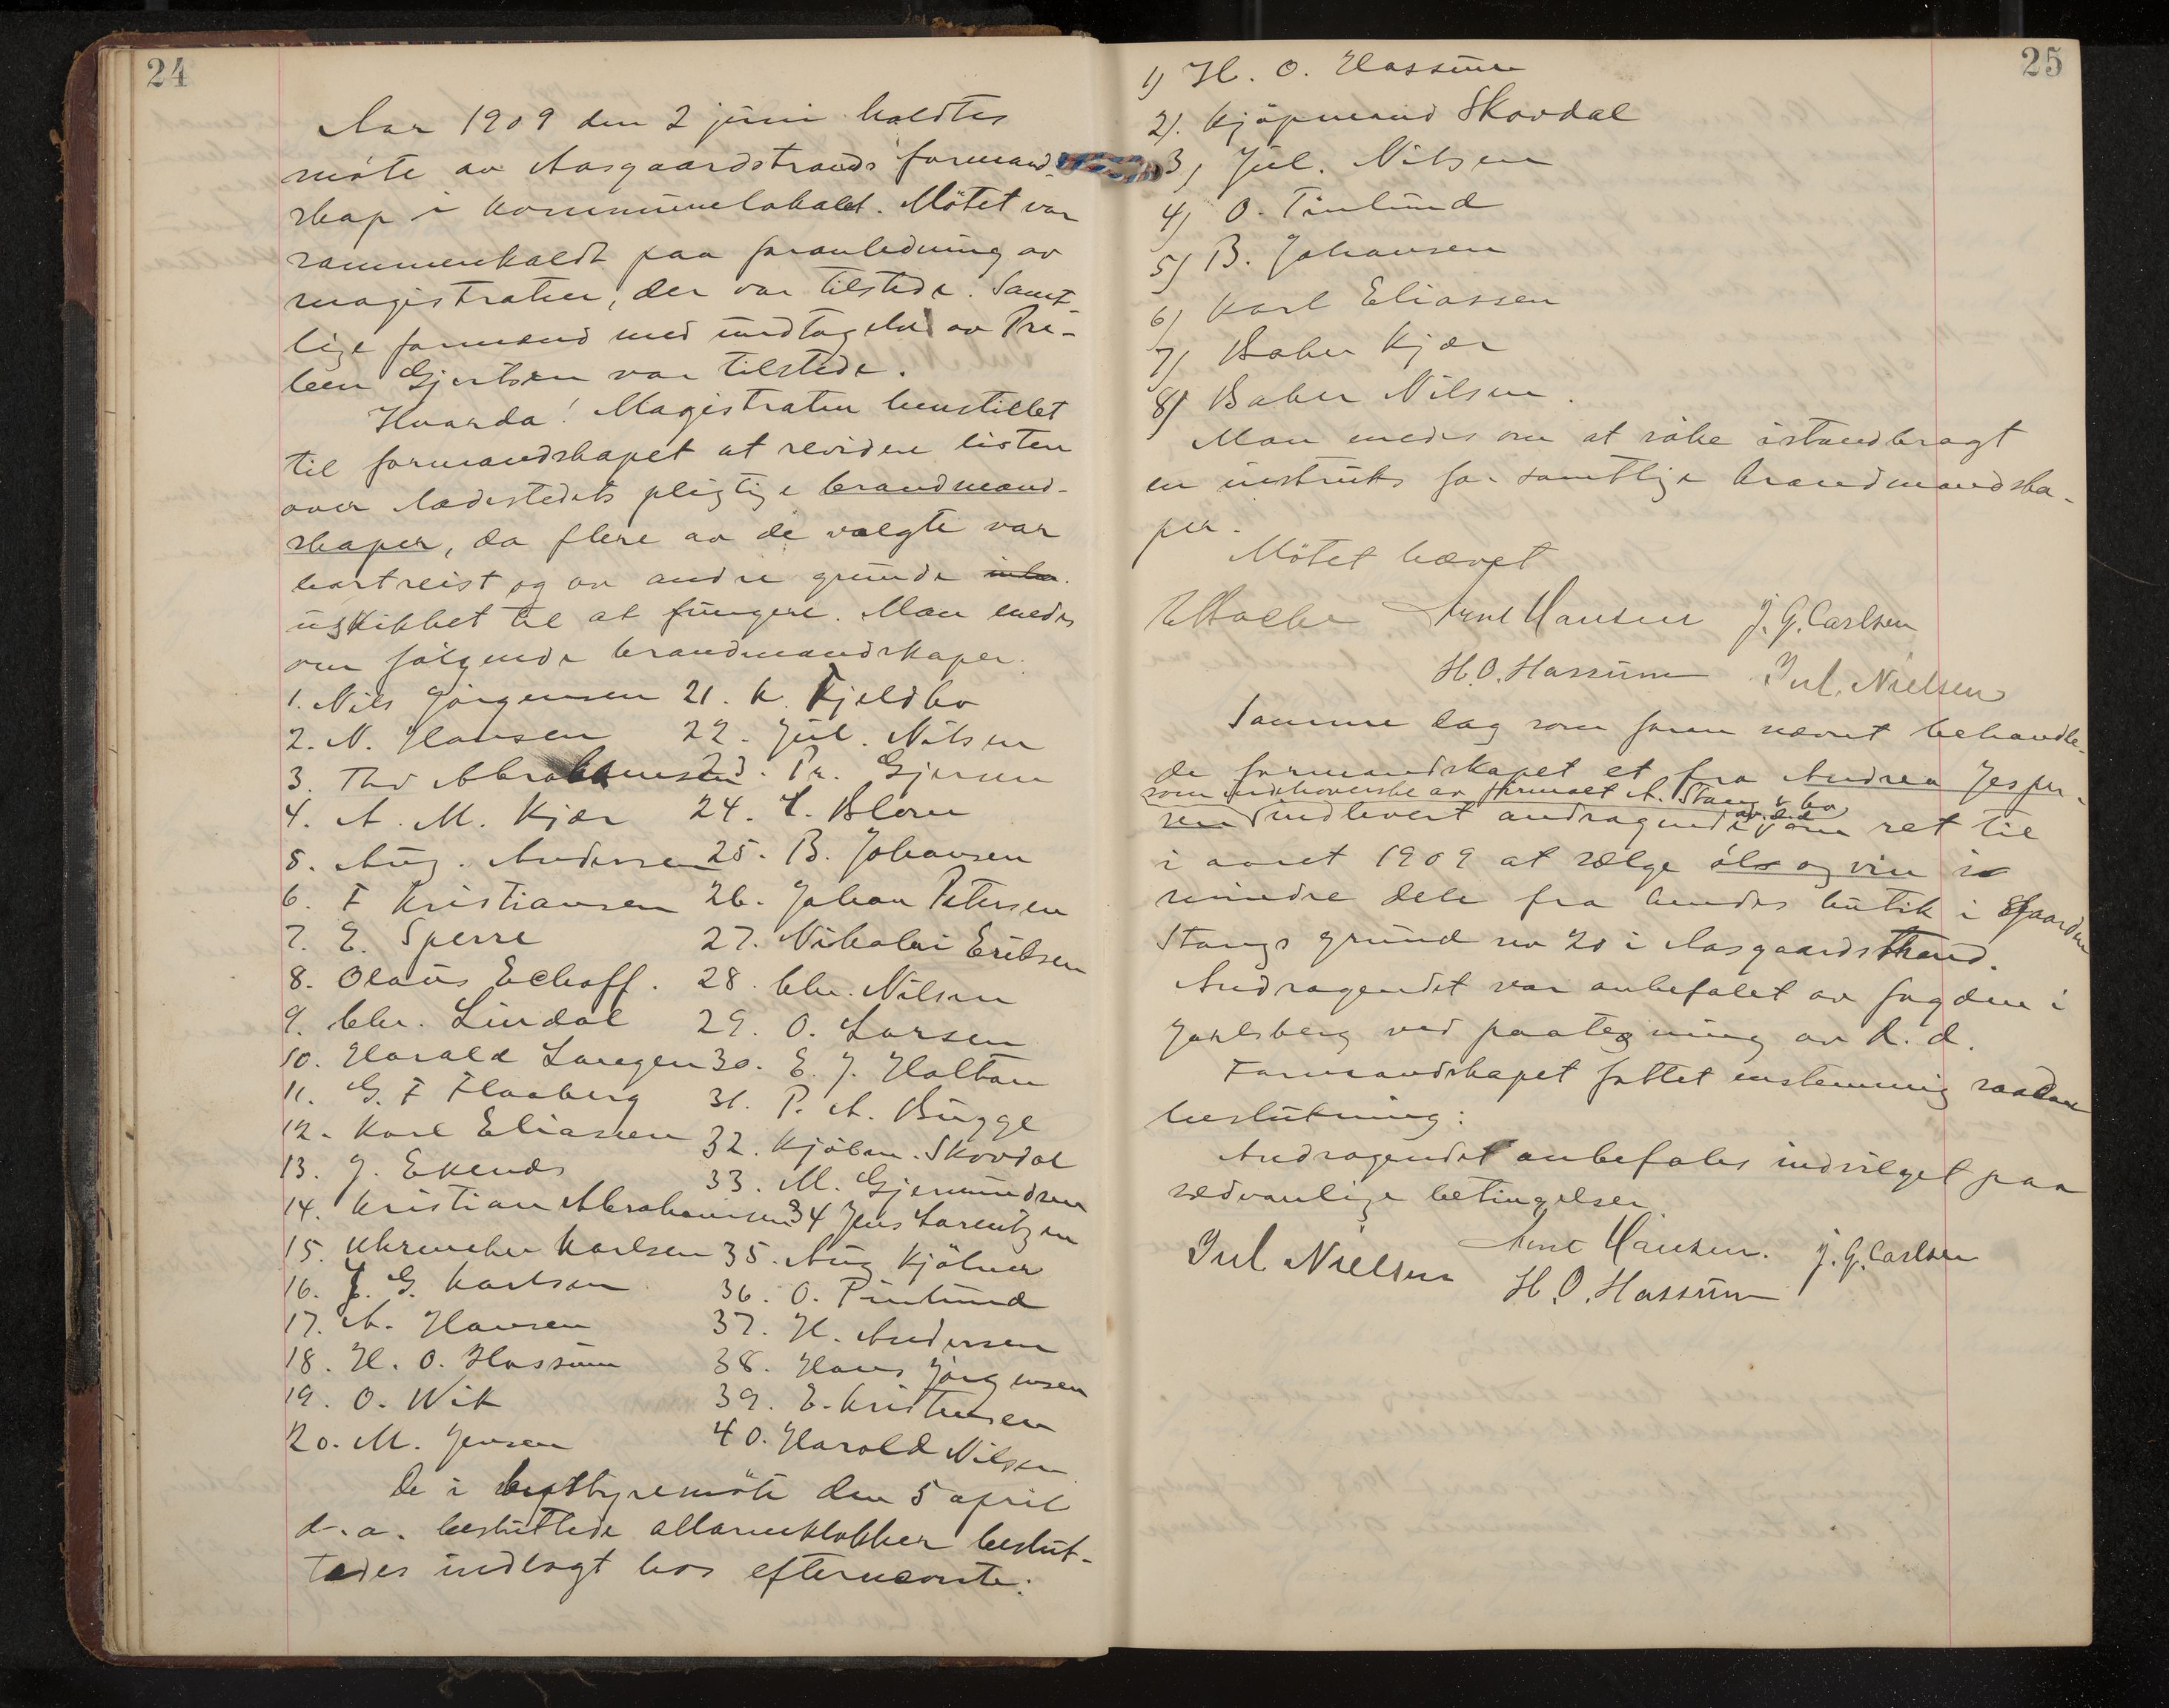 24
Aar 1909 den 2 juni holdtes
møte av Aasgaardstrands formand-
skap i kommunelokalet. Mötet var
sammenkaldt paa foranledning av
magistraten, der var tilstede. Samt-
lige formænd med undtagelse av Pre-
ben Gjertsen var tilstede.
Hvorda! Magistraten henstillet
til formandskapet at revidere listen
over ladestedets pligtige brandmand-
skaper, da flere av de valgte var
bortreist og av andre grunde
uskikket til at fungere. Man enedes
om følgende brandmandskaper:
1. Nils Jörgensen 21. K. Fjeldbo
2. N. Hansen 22. Jul. Nilsen
3. Thv Abrahamsen 23. Pr. Gjersen
4. A. M. Kjær 24. C. Blom
5. Aug. Andersen 25. B. Johansen
6. F Kristiansen 26. Johan Petersen
7. E. Sperre 27. Nikolai Eriksen
8. Olaus Echoff. 28. Chr. Nilsen
9. Chr. Lindal 29. O. Larsen
10. Harald Langen 30. E. J. Holtan
11. G. F Flaaberg 31. P. A. Bugge
12. Karl Eliassen 32. Kjöbm. Skovdal
13. J. Evends 33. M. Gjermundsen
14. Kristian Abrahamsen 34 Jens Lorentzen
15. Uhrmaker Karlsen 35. Aug Kjölner
16. J. G. Karlsen 36. O. Tinlund
17. A. Hansen 37. H. Andersen
18. H. O. Hassum 38. Hans Jörgensen
19. O. Wik 39. E. Kristensen
20. M. Jensen 40. Harald Nilsen
De i bystyremöte den 5 april
d.a. besluttede allarmklokker beslut-
tedes indlagt hos efternævnte:
25
1) H. O. Hassum
2). Kjöpmand Skovdal
3) Jul. Nilsen
4) O. Tinlund
5) B. Johansen
6) Karl Eliassen
7) Baker Kjær
8) Baker Nilsen.
Man enedes om at söke istandbragt
en instruks for samtlige brandmandska-
per.
Mötet hævet
Arnt Hansen J. G. Carlsen
H. O. Hassum Jul. Nielsen
Samme dag som foran nævnt behandle-
de formandskapet et fra Andrea Jesper-
som indehaverske av firmaet A. Stang & Co
sen indlevert andragende om ret til
i aaret 1909 at sælge öl og vin i
mindre dele fra hendes butik i Gaarden
Stangs grund no 20 i Aasgaardstrand.
Andragendet var anbefalet av fogden i
Jarlsberg ved paategning av d. d.
Formandskapet fattet enstemmig saadan
beslutning:
Andragendet anbefales indvilget paa
sædvanlige betingelser.
Jul Nielsen Arnt Hansen. J. G. Carlsen
H. O. Hassum